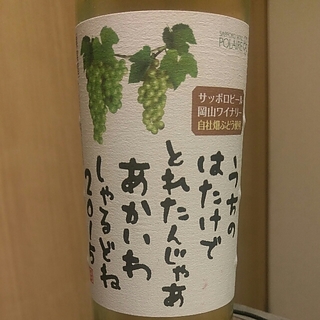 SAPPORO WINE
POLAIRE
サッポロビール
岡山ワイナリー
自社畑ぶどう使用
うちの
はたけで
とれたんじゃあ
あかいわ
しゃるどね
2015